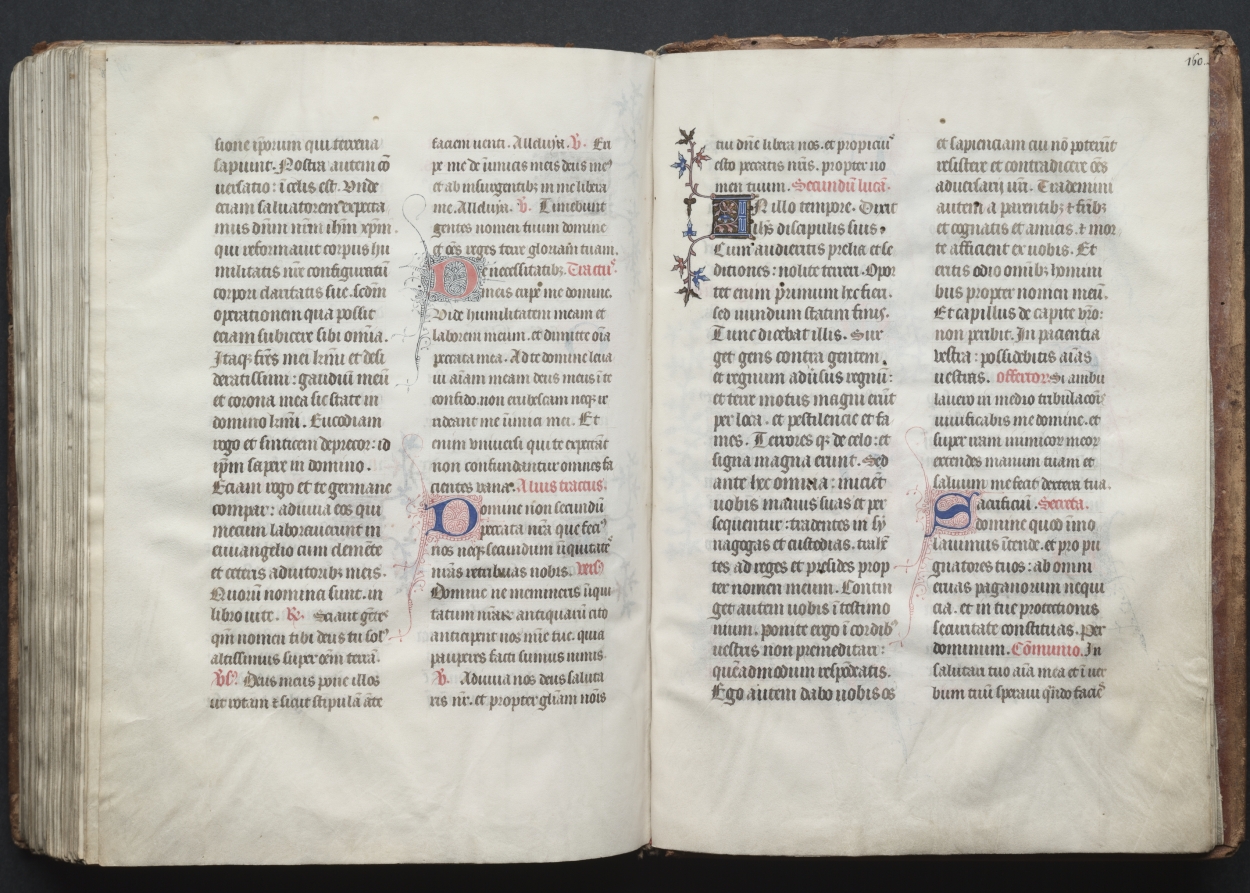 sione ip̄orum qui terrena
sapiunt. Nostra autem cō
uersatio: ī celis est. Vnde
eciam saluatorem expecta
mus dn̄m nr̄m ih̄m xp̄m.
qui reformauit corpus hu
militatis nr̄e configuratū
corpori claritatis sue. scd̄m
operationem qua possit
eciam subicere sibi om̄ia.
Itaqꝫ fr̄es mei kr̄mi et desi
deratissimi: gaudiū meū
et corona mea sic state in
domino kr̄mi. Eucodiam
rogo et sinticem deprecor: id
ip̄m sapere in domino.
Eciam rogo et te germane
compar: adiuua eos qui
mecum laborauerunt in
euuangelio cum clemēte
et ceteris adiutoribꝫ meis.
Quorū nomina sunt. in
libro uite. R̄. Sciant gētes
qm̄ nomen tibi deus tu sol᷒
altissimus super om̄em terrā.
Vs̄. Deus meus pone illos
ut rotam ⁊ sicut stipulā āte
faciem uenti. Alleluja. V. Eri
pe me de inimicis meis deus me᷒
et ab insurgentibꝫ in me libera
me. Alleluja. V. Timebunt
gentes nomen tuum domine
et om̄s reges terre gloriam tuam.
De necessitatibꝫ. Tractus.
meis eripe me domine.
Vide humilitatem meam et
laborem meum. et dimitte om̄ia
peccata mea. Ad te domine leua
ui aīam meam deus meus ī te
confido. non erubescam neqꝫ ir
rideant me inimici mei. Et
enim vniuersi qui te expectāt
non confundantur omnes fa
cientes vana. Alius tractus.
Domine non secundū
peccata nr̄a que feci᷒
nos neqꝫ secundum iniquitates
nr̄as retribuas nobis. Vers᷒
Domine ne memineris iniqui
tatum nr̄arum antiquarū cito
anticipent nos mīe tue. quia
pauperes facti sumus nimis.
V. Adiuua nos deus saluta
ris nr̄. et propter gl̄iam nōis
tui dn̄e libera nos. et propicius
esto peccatis nr̄is. propter no
men tuum. Secundū lucā.
IN illo tempore. Dixit
ih̄s discipulis suis.
Cum audieritis prelia et se
ditiones: nolite terreri. Opor
tet enim primum hec fieri.
sed nundum statim finis.
Tunc dicebat illis. Sur
get gens contra gentem.
et regnum aduersus regnū:
et terre motus magni erūt
per loca. et pestilencie et fa
mes. Terrores qꝫ de celo: et
signa magna erunt. Sed
ante hec omnia: iniciēt
uobis manus suas et per
sequentur: tradentes in sy
nagogas et custodias. trahē
tes ad reges et presides prop
ter nomen meum. Contin
get autem uobis ī testimo
nium. Ponite ergo ī cordibꝫ
uestris non premeditari:
quēadmodum respōdeatis.
Ego autem dabo uobis os
160.
et sapienciam cui nō poterūt
resistere et contradicere om̄s
aduersarij ur̄i. Trademini
autem a parentibꝫ ⁊ fr̄ibꝫ
et cognatis et amicis. ⁊ mor
te afficient ex uobis. Et
eritis odio omībꝫ homini
bus propter nomen meū.
Et capillus de capite ur̄o:
non peribit. In paciencia
vestra: possidebitis aīas
uestras. Offertor᷒. Si ambu
lauero in medio tribulacōis
uiuificabis me domine. et
super iram inimicor᷒ meor᷒
extendes manum tuam et
saluum me fecit dextera tua.
Sacrificiū. Secreta.
domine quod īmo
lauimus ītende. et pro pu
gnatores tuos: ab omni
eruas paganorum nequi
cia. et in tue protectionis
securitate constituas. Per
dominum. Cōmunio. In
salutari tuo aīa mea et ī uer
bum tuū speraui qn̄do facies